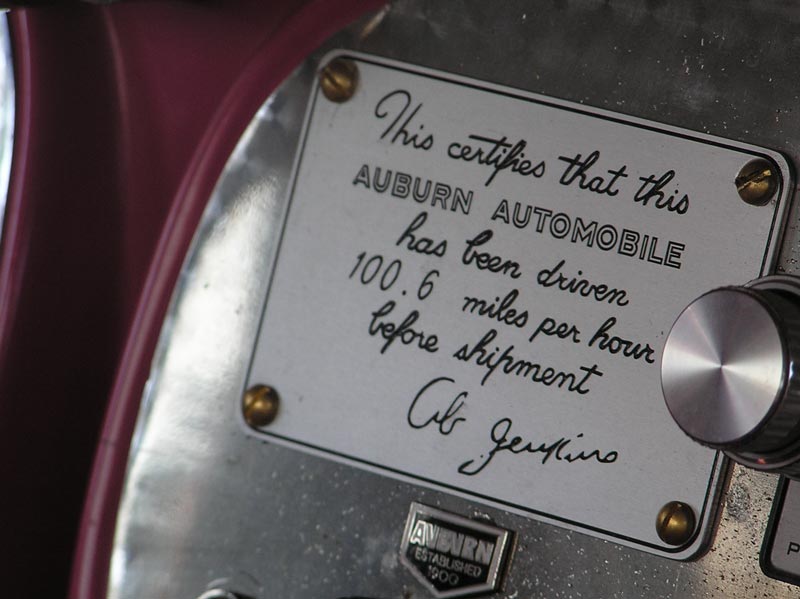 This certifies that this
AUBURN AUTOMOBILE
has been driven
100.6 miles per hour
before shipment
Ab Jenkins
AUBURN
ESTABLISHED
1900
P